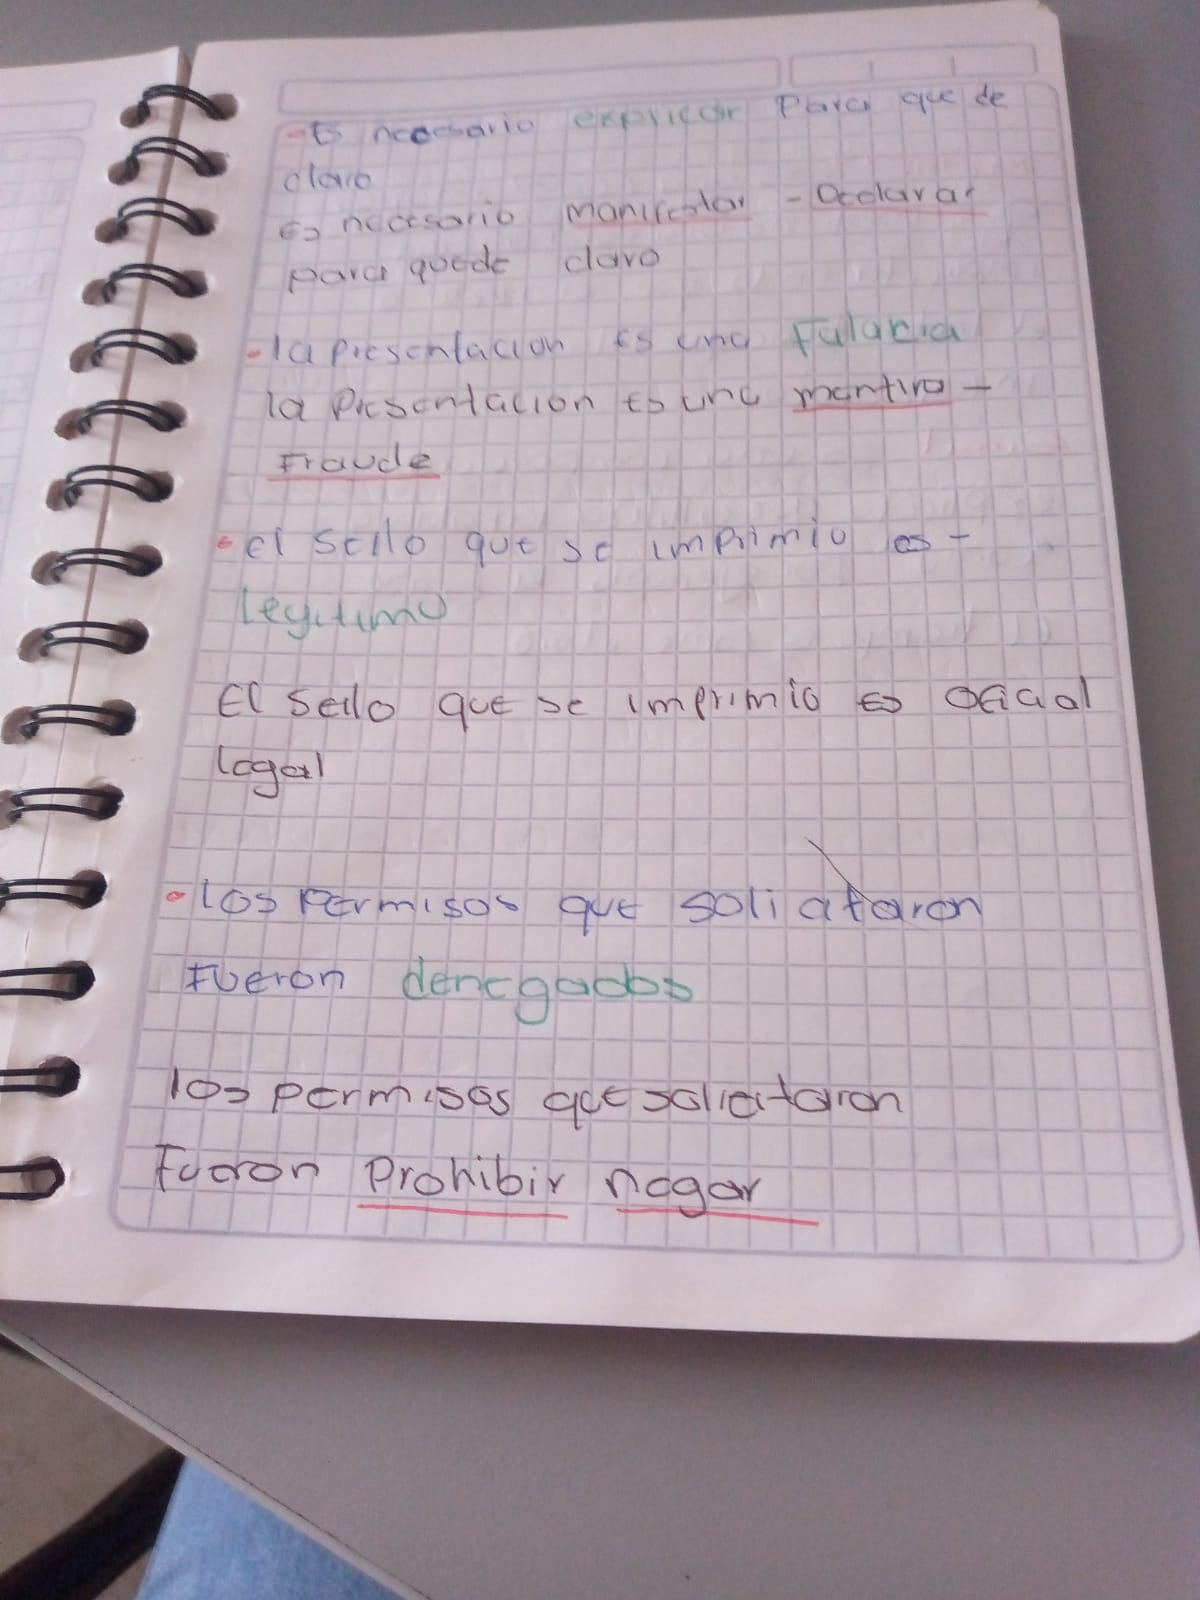 - Es necesario explicar Para que de
claro
es necesario manifestar - Aclarar
para quede claro
• la presentacion es una Falacia
la Presentacion es una mentira -
Fraude
• el Sello que se imprimio es -
legitimo
El Sello que se imprimio es Oficial
legal
• los Permisos que solicitaron
Fueron denegados
los permisos que solicitaron
Fueron Prohibir negar